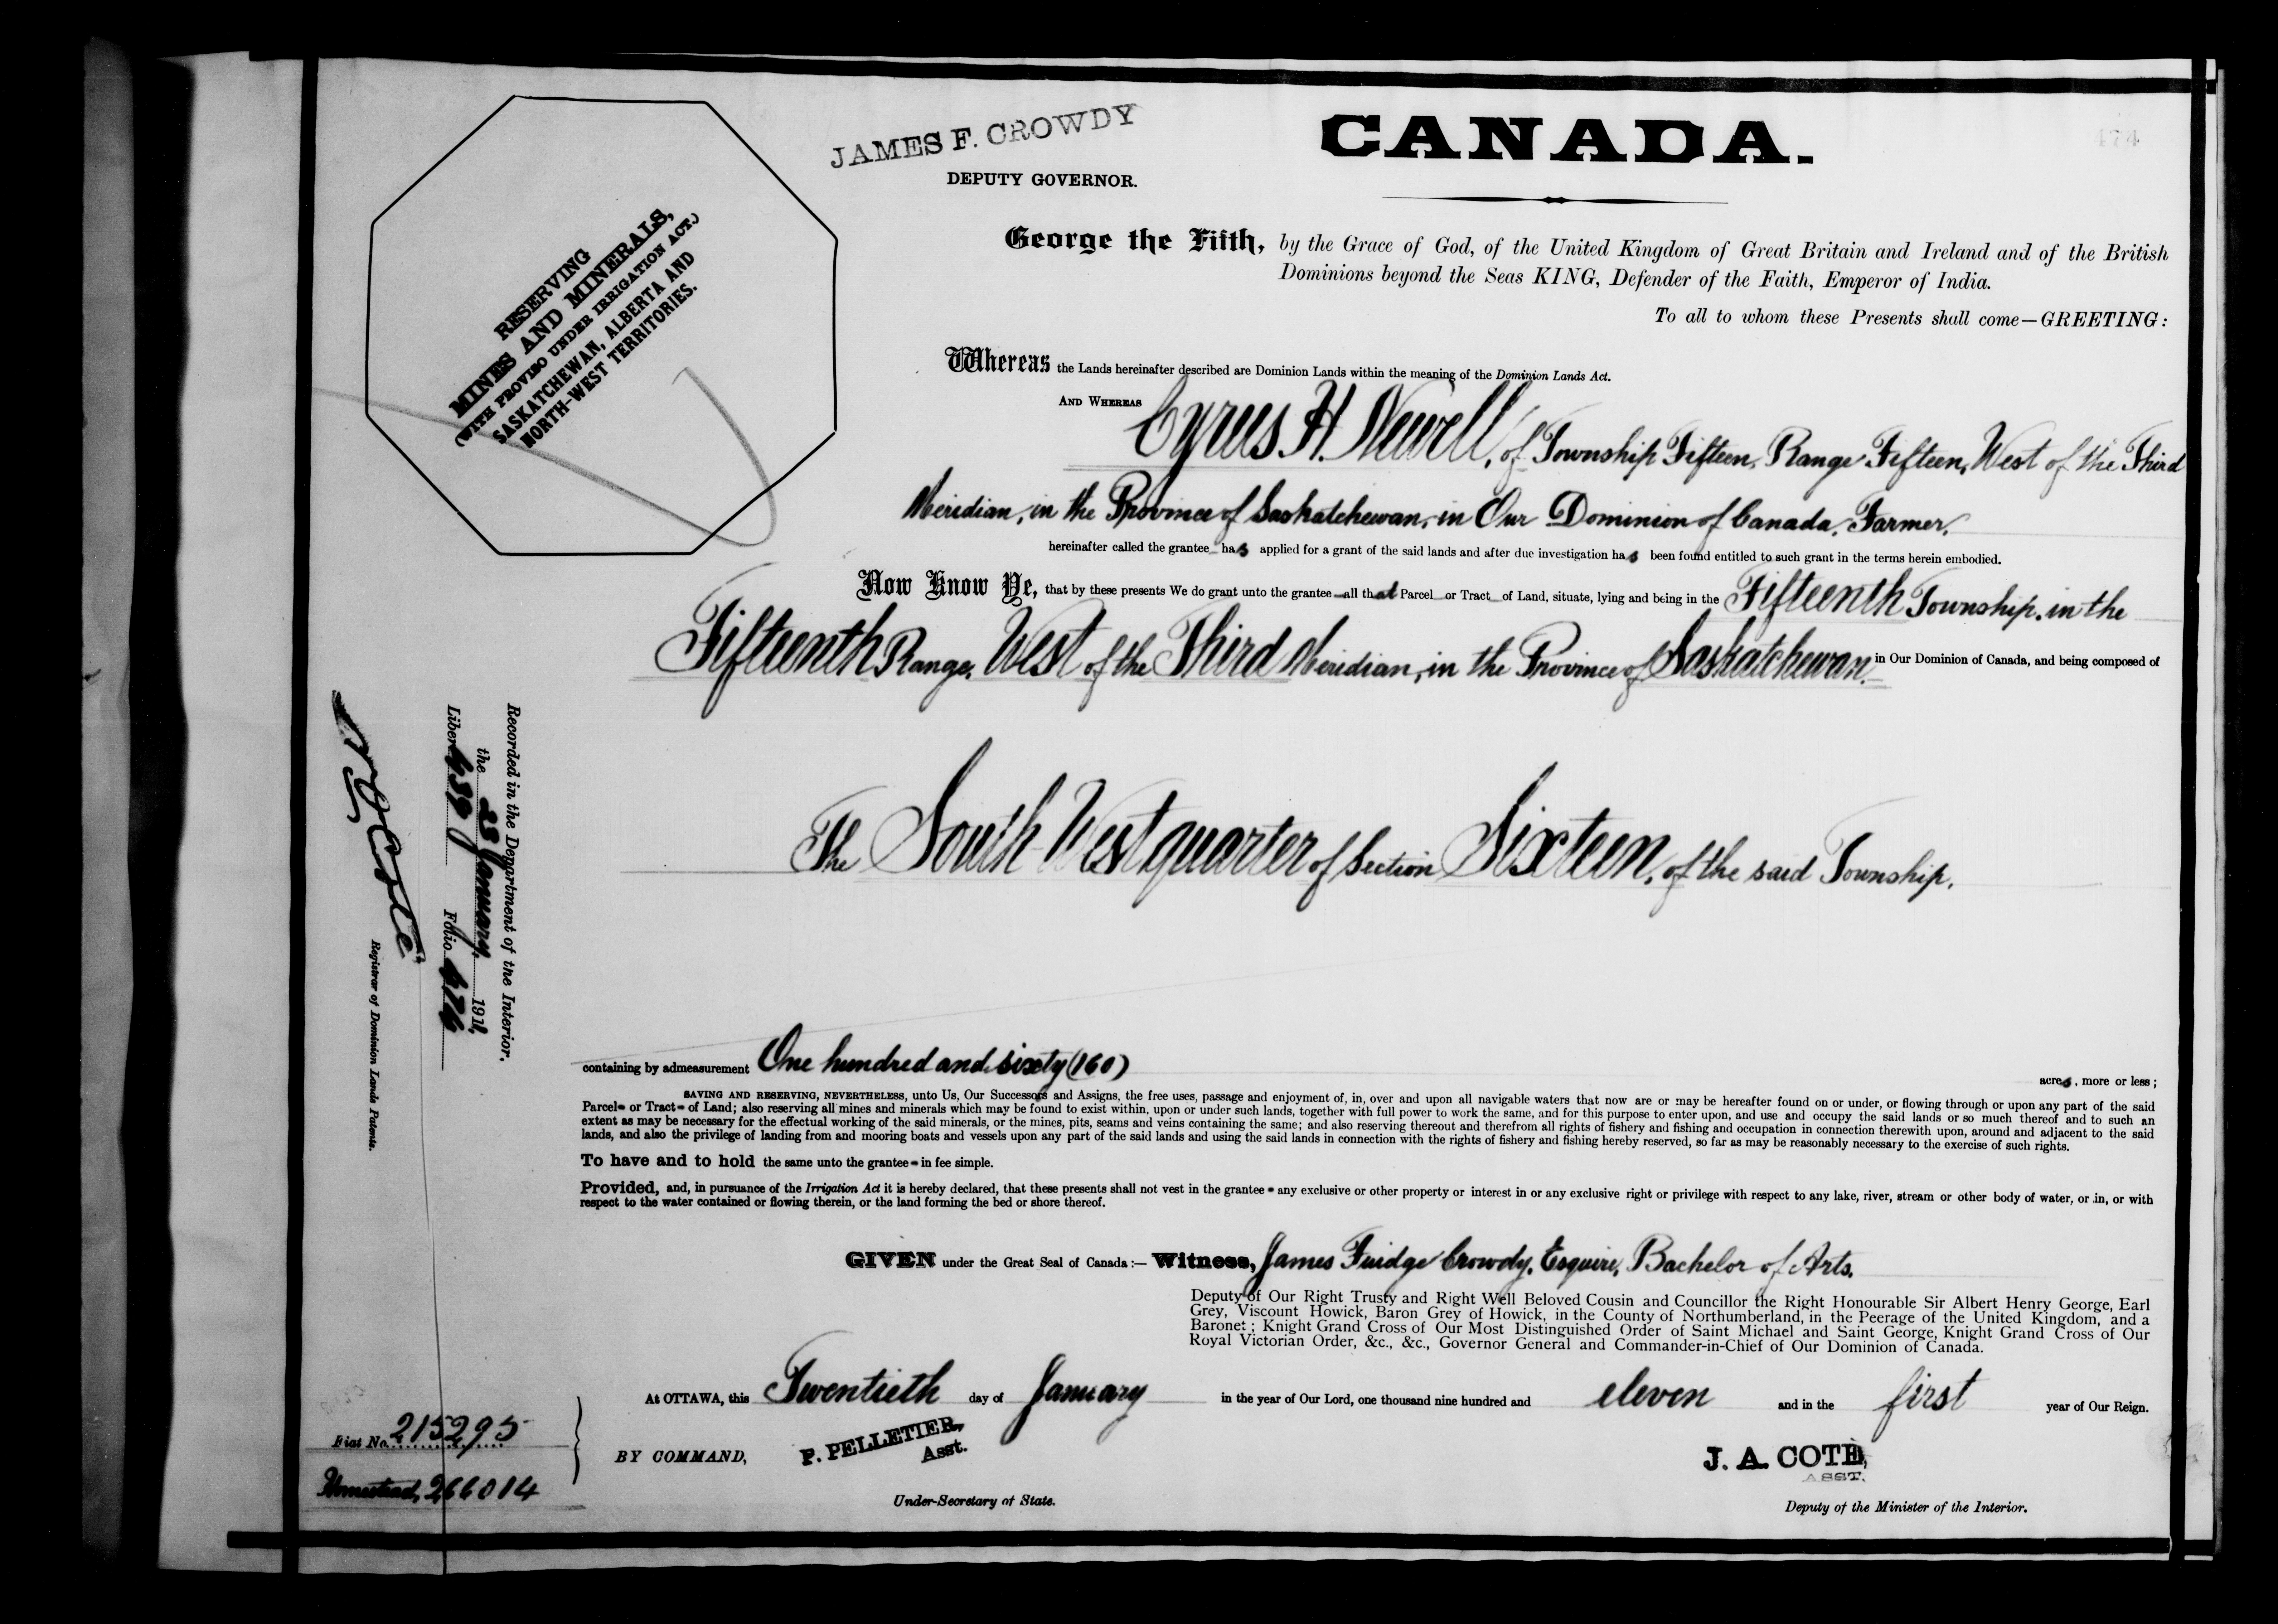 474
JAMES F. CROWDY
DEPUTY GOVERNOR.
CANADA.
RESERVING
MINES AND MINERALS,
(WITH PROVISO UNDER IRRIGATION ACT.)
SASKATCHEWAN, ALBERTA AND
NORTH-WEST TERRITORIES.
George the Fifth, by the Grace of God, of the United Kingdom of Great Britain and Ireland and of the British
Dominions beyond the Seas KING, Defender of the Faith, Emperor of India.
To all to whom these Presents shall come—GREETING:
Whereas the Lands hereinafter described are Dominion Lands within the meaning of the Dominion Lands Act.
AND WHEREAS Cyrus H. Newell, of Township Fifteen, Range Fifteen, West of the Third
Meridian, in the Province of Saskatchewan, in Our Dominion of Canada, Farmer,
hereinafter called the grantee has applied for a grant of the said lands and after due investigation has been found entitled to such grant in the terms herein embodied.
Now Know Ye, that by these presents We do grant unto the grantee all that Parcel or Tract of Land, situate, lying and being in the Fifteenth Township, in the
Fifteenth Range, West of the Third Meridian, in the Province of Saskatchewan in Our Dominion of Canada, and being composed of
The South West quarter of Section Sixteen, of the said Township.
containing by admeasurement One hundred and sixty (160) acres, more or less;
SAVING AND RESERVING, NEVERTHELESS, unto Us, Our Successors and Assigns, the free uses, passage and enjoyment of, in, over and upon all navigable waters that now are or may be hereafter found on or under, or flowing through or upon any part of the said
Parcel or Tract of Land; also reserving all mines and minerals which may be found to exist within, upon or under such lands, together with full power to work the same, and for this purpose to enter upon, and use and occupy the said lands or so much thereof and to such an
extent as may be necessary for the effectual working of the said minerals, or the mines, pits, seams and veins containing the same; and also reserving thereout and therefrom all rights of fishery and fishing and occupation in connection therewith upon, around and adjacent to the said
lands, and also the privilege of landing from and mooring boats and vessels upon any part of the said lands and using the said lands in connection with the rights of fishery and fishing hereby reserved, so far as may be reasonably necessary to the exercise of such rights.
To have and to hold the same unto the grantee in fee simple.
Provided, and, in pursuance of the Irrigation Act it is hereby declared, that these presents shall not vest in the grantee any exclusive or other property or interest in or any exclusive right or privilege with respect to any lake, river, stream or other body of water, or in, or with
respect to the water contained or flowing therein, or the land forming the bed or shore thereof.
GIVEN under the Great Seal of Canada:— Witness, James Fuidge Crowdy, Esquire, Bachelor of Arts.
Deputy of Our Right Trusty and Right Well Beloved Cousin and Councillor the Right Honourable Sir Albert Henry George, Earl
Grey, Viscount Howick, Baron Grey of Howick, in the County of Northumberland, in the Peerage of the United Kingdom, and a
Baronet; Knight Grand Cross of Our Most Distinguished Order of Saint Michael and Saint George, Knight Grand Cross of Our
Royal Victorian Order, &c., &c., Governor General and Commander-in-Chief of Our Dominion of Canada.
At OTTAWA, this Twentieth day of January in the year of Our Lord, one thousand nine hundred and eleven and in the first year of Our Reign.
BY COMMAND,
P. PELLETIER,
Asst.
Under-Secretary of State.
J. A. COTE,
ASST.
Deputy of the Minister of the Interior.
Recorded in the Department of the Interior,
the 23 January, 1911,
Liber 439 Folio 474
N O Coté
Registrar of Dominion Lands Patents.
Fiat No. 215295
Homestead, 266014